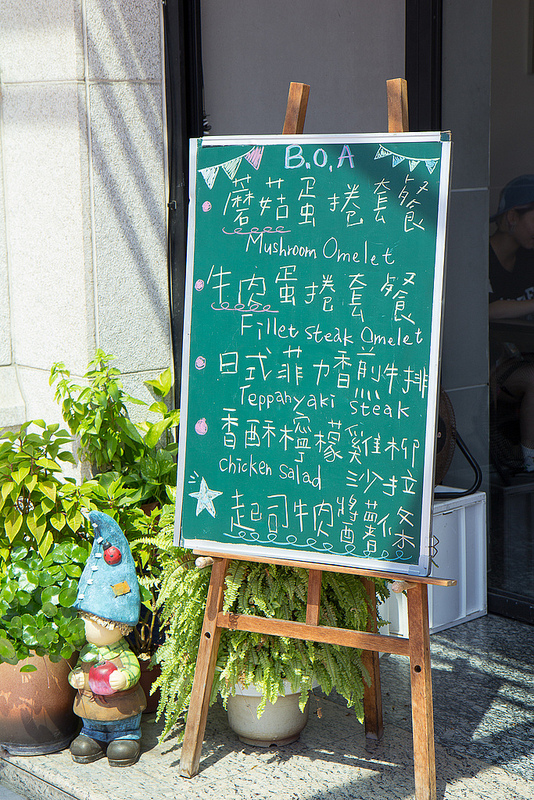 B.O.A
蘑菇蛋捲套餐
Mushroom Omelet
牛肉蛋捲套餐
Fillet steak Omelet
日式菲力香煎牛排
Teppanyaki steak
香酥檸檬雞雞柳
chicken salad 沙拉
起司牛肉醬薯條